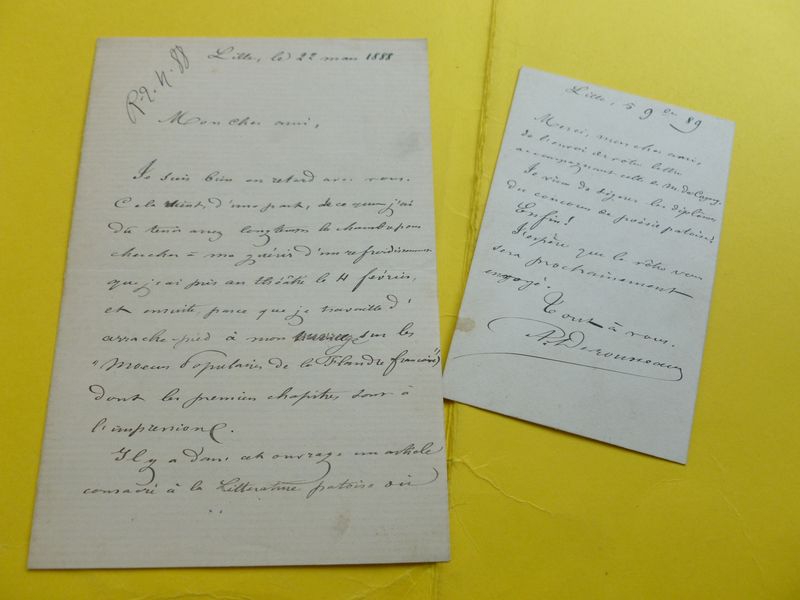 Lille, le 22 mars 1888
R 2. 4. 88
Mon cher ami,
Je suis bien en retard avec vous.
Cela tient, d'une part, de ce que j'ai
dû tenir assez longtemps la chambre pour
chercher à me guérir d'un refroidissement
que j'ai pris au théâtre le 4 février,
et ensuite, parce que je travaille d'
arrache-pied à mon sur les
"Moeurs Populaires de la Flandre française"
dont les premiers chapitres sont à
l'impression.
Il y a dans cet ouvrage un article
consacré à la Littérature patoise où
Lille, 5 9bre 89
Merci, mon cher ami,
de l'envoi de votre lettre
accompagnant celle de M. de
Je viens de signer les diplômes
du concours de poésie patoise!
Enfin!
J'espère que le vôtre vous
sera prochainement
envoyé.
Tout à vous.
A. Desrousseaux